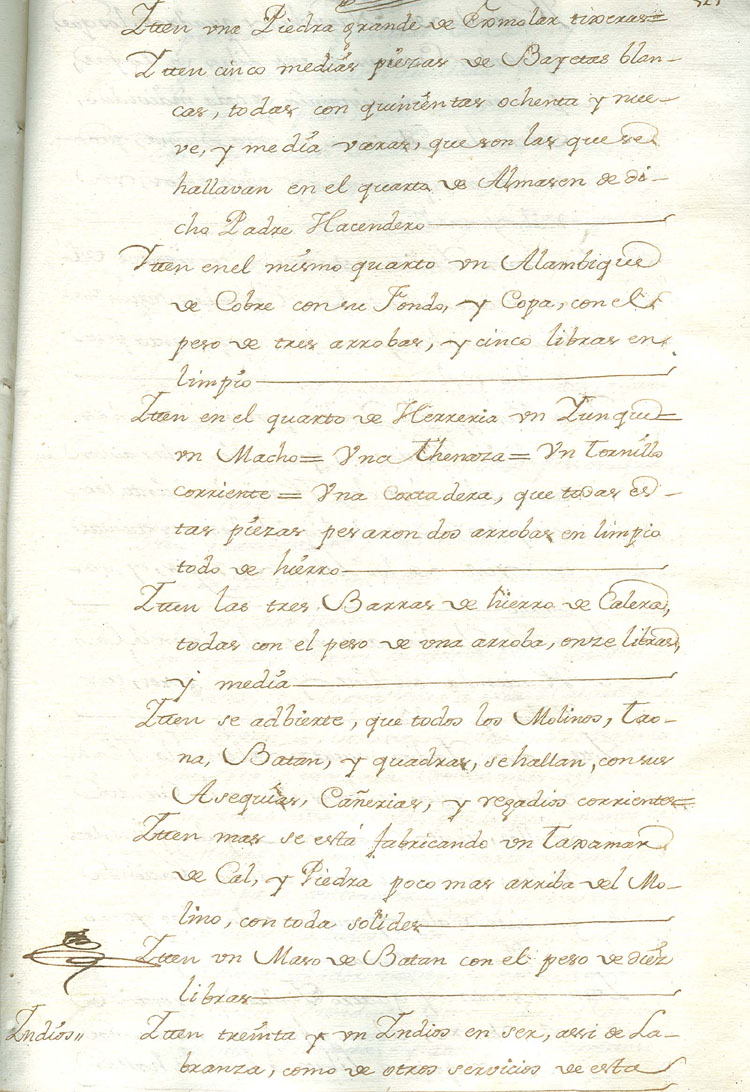 Yten una Piedra grande de Esmolar tixeras=
Yten cinco medias piezas de Bayetas blan-
cas, todas con quinientas ochenta y nue-
ve, y media varas, que son las que se
hallavan en el quarto de Almasen de di-
cho Padre Hacendero
Yten en el mismo quarto un Alambique
de Cobre con su Fondo, y Copa, con el
peso de tres arrobas, y cinco libras en
limpio
Yten en el quarto de Herreria un Yunque=
un Macho= Una Thenaza= Un Tornillo
corriente= Una Cortadera, que todas es-
tas piezas pesaron dos arrobas en limpio
todo de hierro
Yten las tres Barras de hierro de Calera,
todas con el peso de una arroba, onze libras,
y media
Yten se adbierte, que todos los Molinos, Tao-
na, Batan, y quadras, se hallan, con sus
Asequias, Cañerias, y regadios corrientes=
Yten mas se está fabricando un Taxamar
de Cal, y Piedra poco mas arriba del Mo-
lino, con toda solides
Yten un Maso de Batan con el peso de diez
libras
Indios"
Yten treinta y un Indios en ser, assi de La-
branza, como de otros servicios de esta